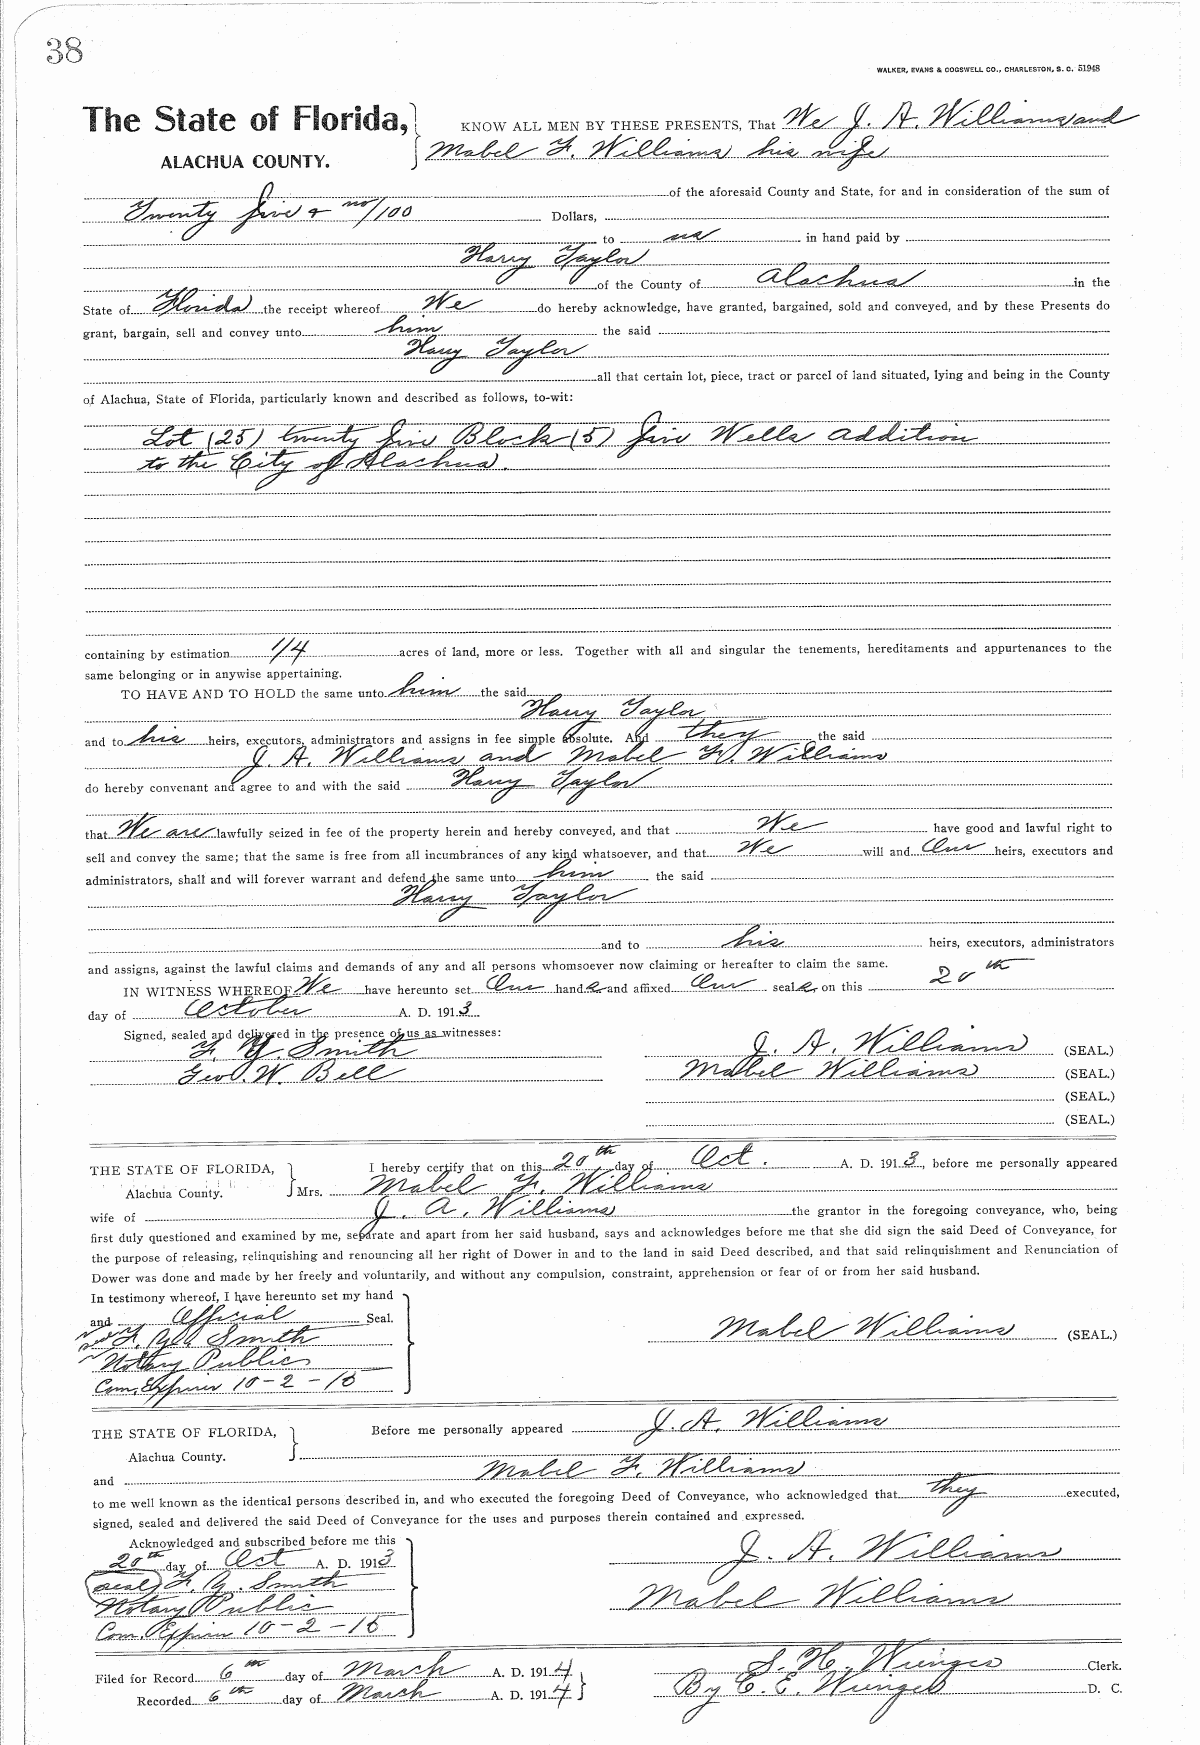 38
WALKER, EVANS & COGSWELL CO., CHARLESTON, S. C. 51948
The State of Florida,
KNOW ALL MEN BY THESE PRESENTS, That We J. A. Williams and
ALACHUA COUNTY.
Mabel F. Williams his wife
of the aforesaid County and State, for and in consideration of the sum of
Twenty five & no/100 Dollars,
to us in hand paid by
Harry Taylor
of the County of Alachua in the
State of Florida the receipt whereof We do hereby acknowledge, have granted, bargained, sold and conveyed, and by these Presents do
grant, bargain, sell and convey unto him the said
Harry Taylor
all that certain lot, piece, tract or parcel of land situated, lying and being in the County
of Alachua, State of Florida, particularly known and described as follows, to-wit:
Lot (25) twenty five Block (5) five Wells addition
to the City of Alachua.
containing by estimation 1/4 acres of land, more or less. Together with all and singular the tenements, hereditaments and appurtenances to the
same belonging or in anywise appertaining.
TO HAVE AND TO HOLD the same unto him the said
Harry Taylor
and to his heirs, executors, administrators and assigns in fee simple absolute. And they the said
J. A. Williams and Mabel F. Williams
do hereby convenant and agree to and with the said Harry Taylor
that We are lawfully seized in fee of the property herein and hereby conveyed, and that We have good and lawful right to
sell and convey the same; that the same is free from all incumbrances of any kind whatsoever, and that We will and Our heirs, executors and
administrators, shall and will forever warrant and defend the same unto him the said
Harry Taylor
and to his heirs, executors, administrators
and assigns, against the lawful claims and demands of any and all persons whomsoever now claiming or hereafter to claim the same.
IN WITNESS WHEREOF We have hereunto set Our hands and affixed Our seals on this 20th
day of October A. D. 1913
Signed, sealed and delivered in the presence of us as witnesses:
F. Y. Smith J. A. Williams (SEAL.)
Geo. W. Bell Mabel Williams (SEAL.)
(SEAL.)
(SEAL.)
THE STATE OF FLORIDA, I hereby certify that on this 20th day of Oct. A. D. 1913, before me personally appeared
Alachua County. Mrs. Mabel F. Williams
wife of J. A. Williams the grantor in the foregoing conveyance, who, being
first duly questioned and examined by me, separate and apart from her said husband, says and acknowledges before me that she did sign the said Deed of Conveyance, for
the purpose of releasing, relinquishing and renouncing all her right of Dower in and to the land in said Deed described, and that said relinquishment and Renunciation of
Dower was done and made by her freely and voluntarily, and without any compulsion, constraint, apprehension or fear of or from her said husband.
In testimony whereof, I have hereunto set my hand
and Official Seal.
seal F. Y. Smith Mabel Williams (SEAL.)
Notary Public
Com. Expires 10-2-15
THE STATE OF FLORIDA, Before me personally appeared J. A. Williams
Alachua County.
and Mabel F. Williams
to me well known as the identical persons described in, and who executed the foregoing Deed of Conveyance, who acknowledged that they executed,
signed, sealed and delivered the said Deed of Conveyance for the uses and purposes therein contained and expressed.
Acknowledged and subscribed before me this
20th day of Oct A. D. 1913 J. A. Williams
(seal) F. Y. Smith
Notary Public Mabel Williams
Com. Expires 10-2-15
Filed for Record 6th day of March A. D. 1914 S. H. Wienges Clerk.
Recorded 6th day of March A. D. 1914 By C. E. Wienges D. C.